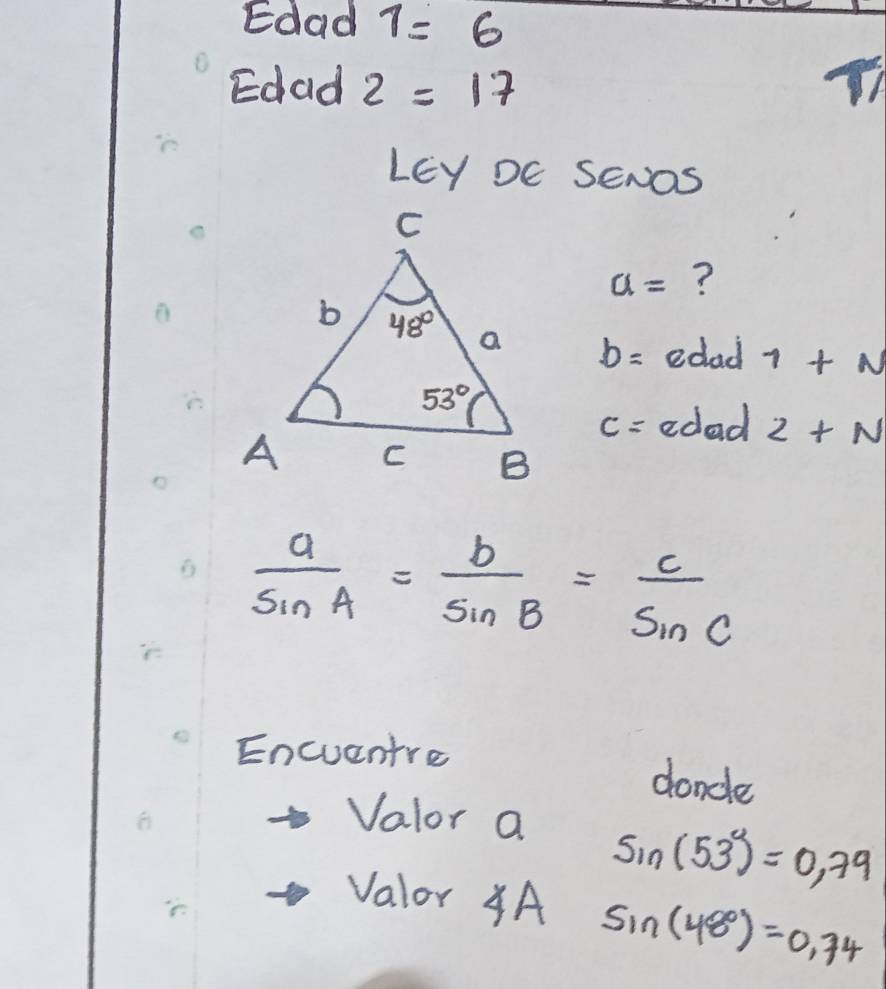 Edad 1 = 6
Edad 2 = 17
LEY DE SENOS
C
b 48° a
53°
A c B
a = ?
b = edad 1 + N
c = edad 2 + N
a/Sin A = b/Sin B = c/Sin C
Encuentre
→ Valor a
→ Valor ∡A
donde
Sin(53°) = 0,79
Sin(48°) = 0,74